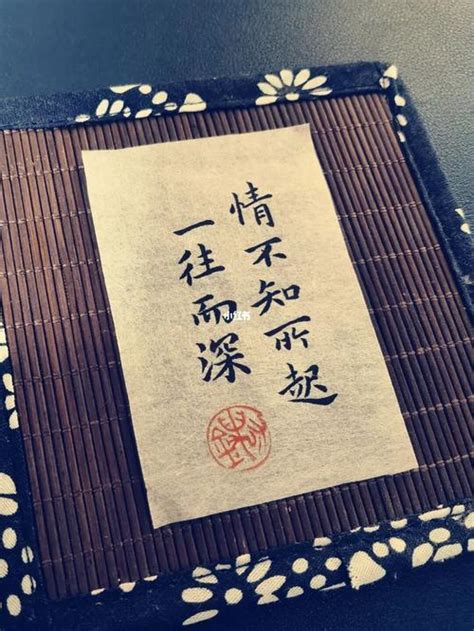 情不知所起
一往而深
小红书